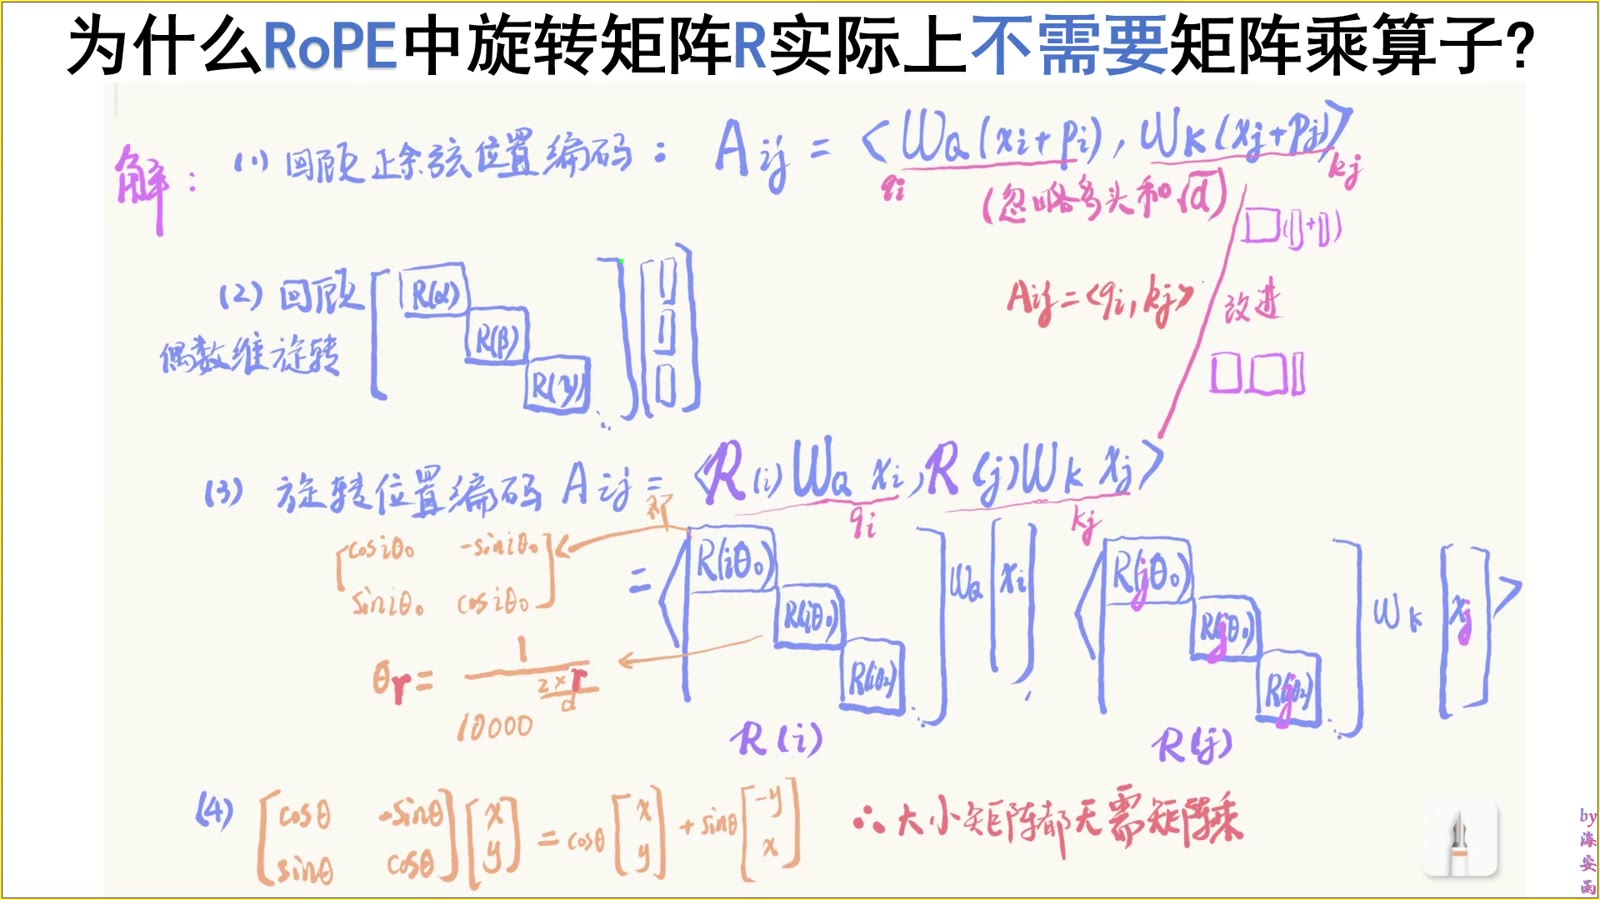 为什么RoPE中旋转矩阵R实际上不需要矩阵乘算子?
解: (1) 回顾正余弦位置编码: Aij = <WQ(xi+pi), WK(xj+pj)>
qi kj
(忽略多头和√d)
□(▯+▯)
(2) 回顾 [R(α) R(β) R(γ) ⋱]
偶数维旋转
Aij = <qi, kj> 改进
(3) 旋转位置编码 Aij = <R(i) WQ xi, R(j) WK xj>
qi kj
[cosiθ₀ -siniθ₀
siniθ₀ cosiθ₀]
= <[R(iθ₀) R(iθ₁) R(iθ₂) ⋱] WQ [xi], <[R(jθ₀) R(jθ₁) R(jθ₂) ⋱] WK [xj]>
θr = 1 / 10000^(2×r/d)
R(i) R(j)
(4) [cosθ -sinθ; sinθ cosθ] [x; y] = cosθ [x; y] + sinθ [-y; x] ∴ 大小矩阵都无需矩阵乘
by
海
安
雨